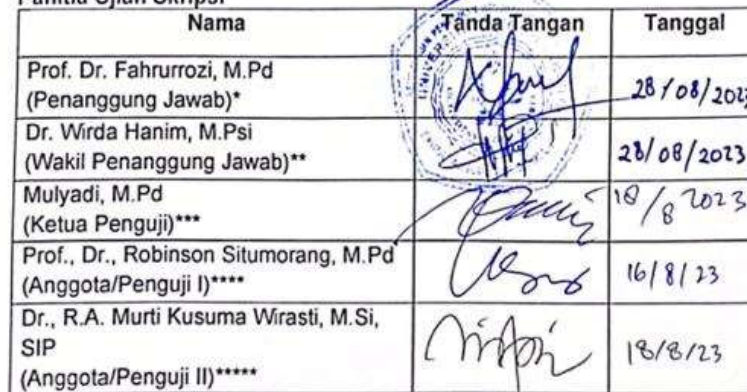 Panitia Ujian Skripsi
Nama Tanda Tangan Tanggal
Prof. Dr. Fahrurrozi, M.Pd
(Penanggung Jawab)* 28/08/2023
Dr. Wirda Hanim, M.Psi
(Wakil Penanggung Jawab)** 28/08/2023
Mulyadi, M.Pd
(Ketua Penguji)*** 18/8 2023
Prof., Dr., Robinson Situmorang, M.Pd
(Anggota/Penguji I)**** 16/8/23
Dr., R.A. Murti Kusuma Wirasti, M.Si,
SIP
(Anggota/Penguji II)***** 18/8/23